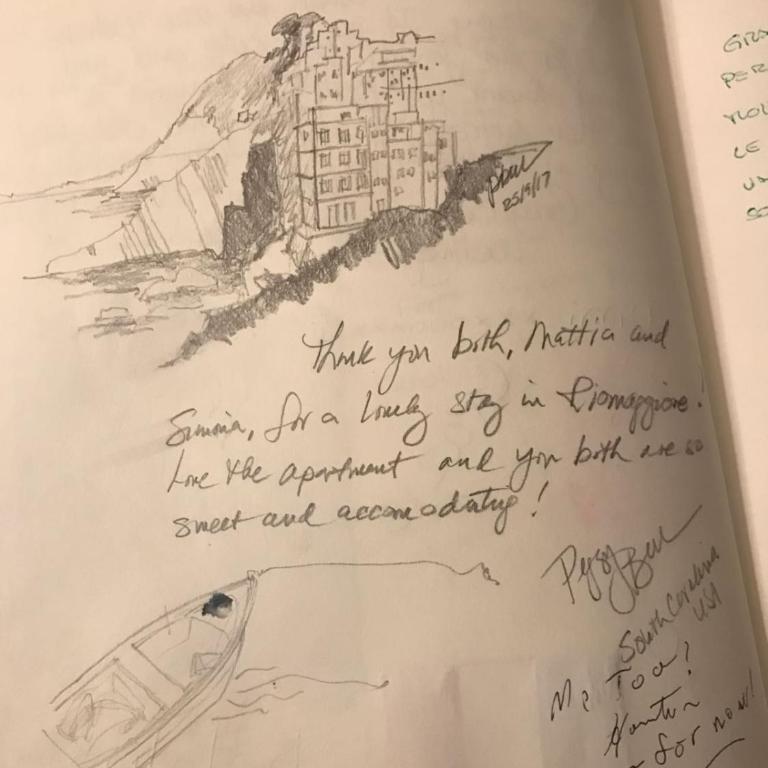 25/9/17
Thank you both, Mattia and
Simona, for a lovely stay in Riomaggiore!
Love the apartment and you both are so
sweet and accomodating!
Peggy
South Carolina
USA
Me Too!
for now!
GRA
PER
LE